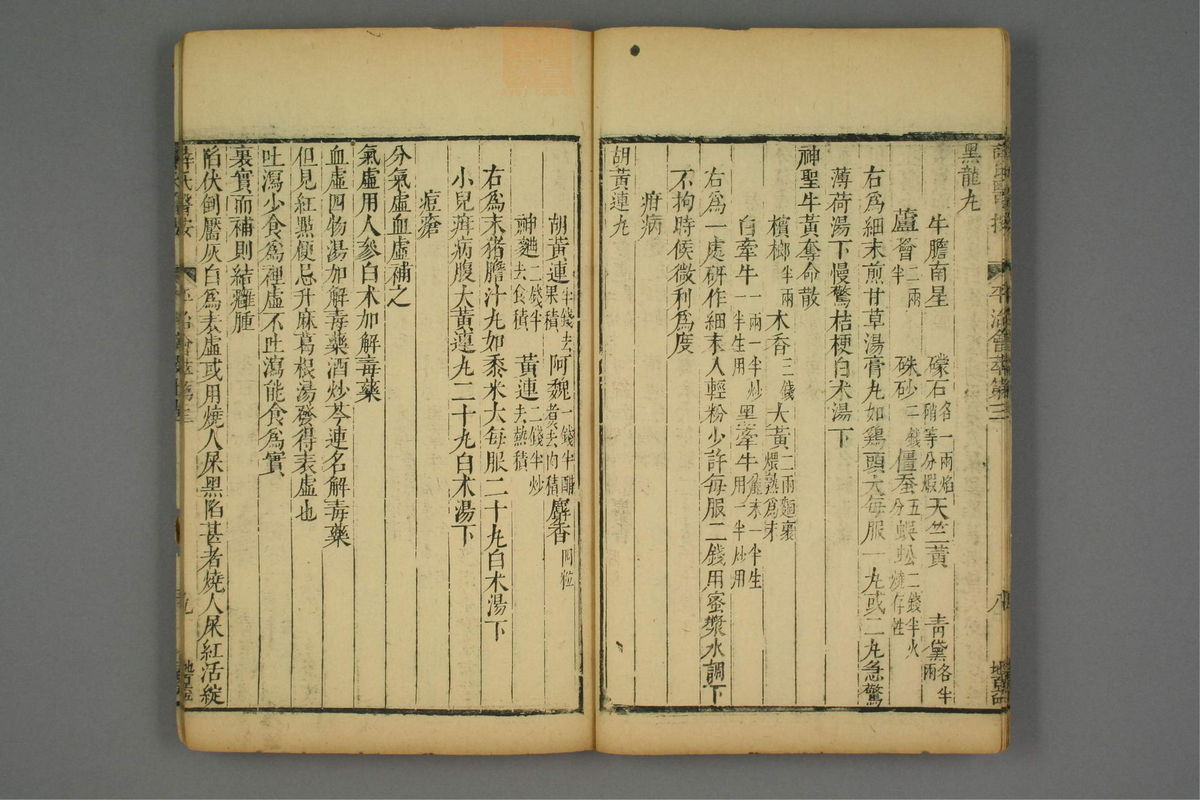 黑龍丸
牛膽南星 礞石各一兩焰硝等分煆 天竺黃 青黛各半兩
蘆薈二兩半 硃砂二錢 僵蚕五分 蜈蚣二錢半火燒存性
右爲細末煎甘草湯膏丸如鷄頭大每服一丸或二丸急驚
薄荷湯下慢驚桔梗白术湯下
神聖牛黃奪命散
檳榔半兩 木香三錢 大黃二兩麵裹煨熟爲末
白牽牛一兩一半炒一半生用 黑牽牛麄末一半生用一半炒用
右爲一處硏作細末入輕粉少許每服二錢用蜜漿水調下
不拘時候微利爲度
疳病
胡黃連丸
胡黃連半錢去果積 阿魏一錢半醋煑去肉積 麝香四粒
神麯二錢半去食積 黃連二錢半炒去熱積
右爲末猪膽汁丸如黍米大每服二十丸白术湯下
小兒疳病腹大黃連丸二十丸白术湯下
痘瘡
分氣虛血虛補之
氣虛用人參白术加解毒藥
血虛四物湯加解毒藥酒炒芩連名解毒藥
但見紅㸃便忌升麻葛根湯發得表虛也
吐瀉少食爲裡虛不吐瀉能食爲實
裏實而補則結癰腫
陷伏倒靨灰白爲表虛或用燒人屎黑陷甚者燒人屎紅活綻